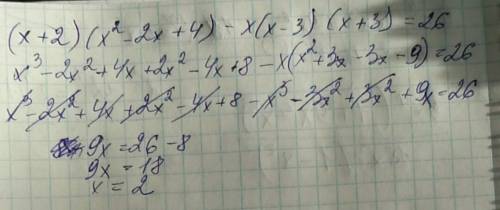 (x+2)(x²-2x+4)-x(x-3)(x+3)=26
x³-2x²+4x+2x²-4x+8-x(x²+3x-3x-9)=26
x³-2x²+4x+2x²-4x+8-x³-3x²+3x²+9x=26
9x=26-8
9x=18
x=2